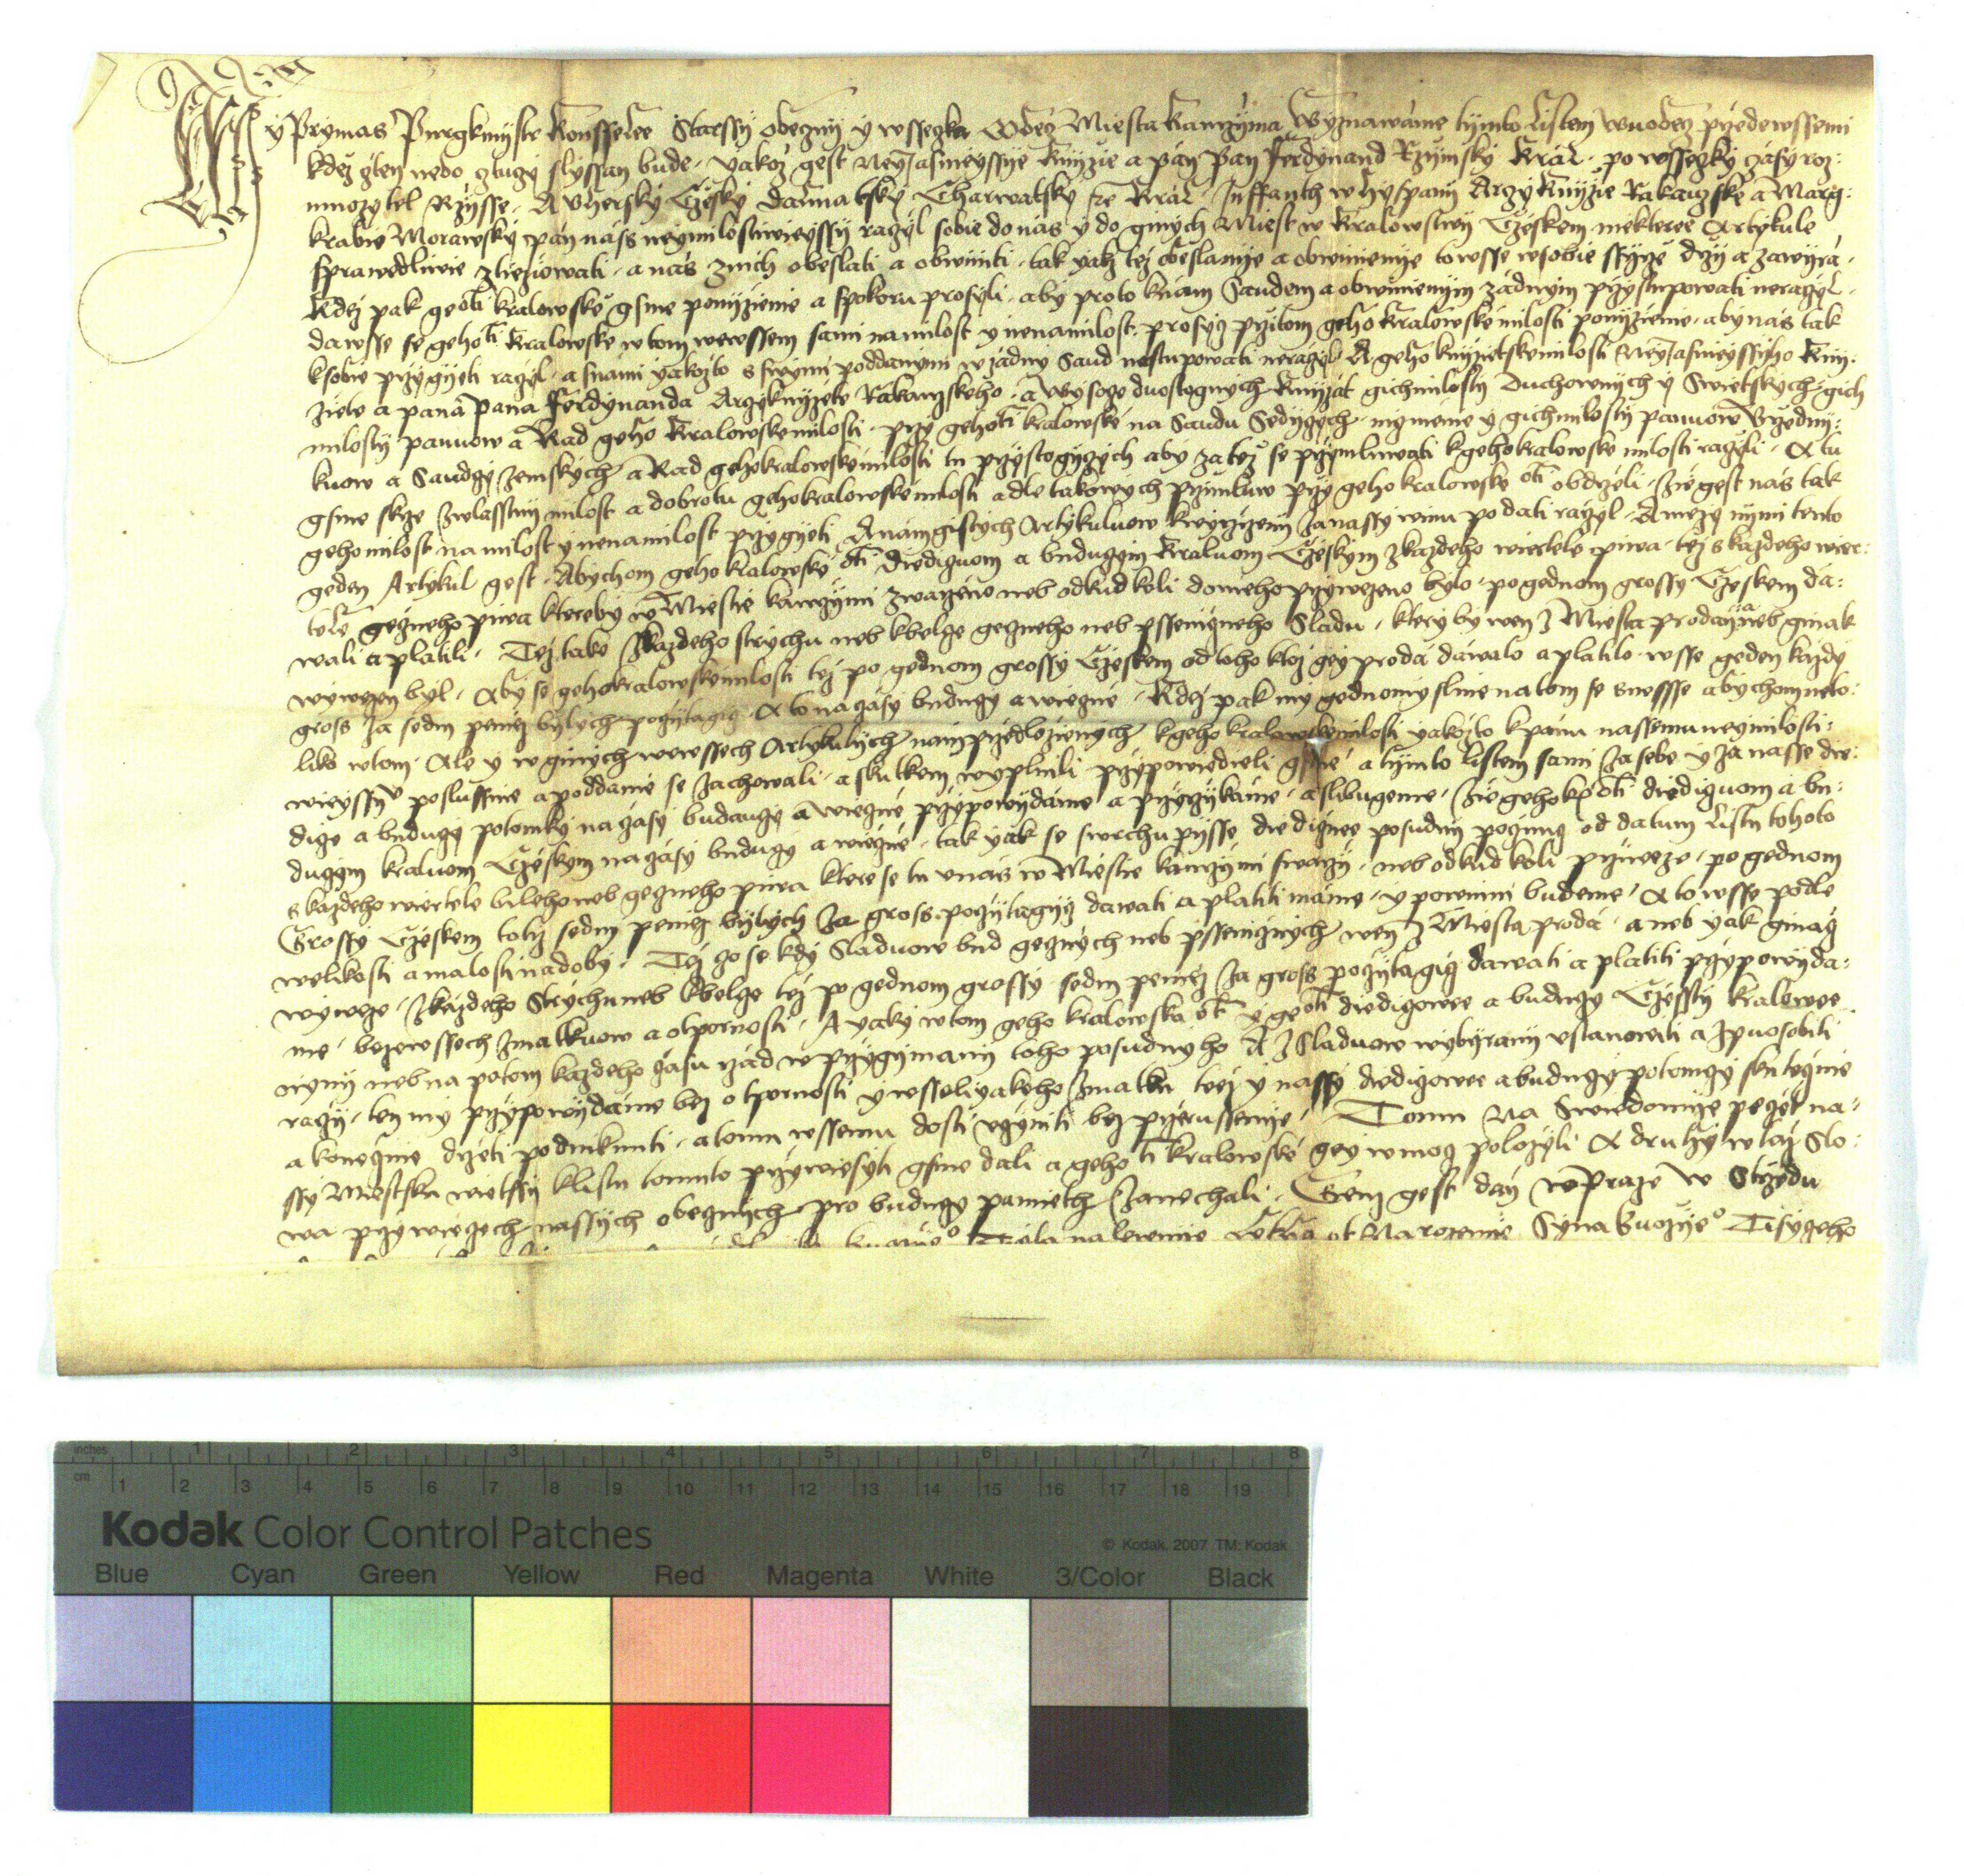 My Prymas Purgkmystr Konsselee Starssy obeczny y wsseczka Obecz Miesta Kaurzyma Wyznawame tymto listem wuobecz przedewssemi
kdez cžten nebo cztuczy slyssan bude. yakoz gest Neyiasnieyssye knijzie a pan Pan Ferdynand Rzymsky Kral. po wsseczky czasy roz:
mnozytel Rzysse. A Uhersky Czesky Dalmatsky Charwatsky ec Kral Inffanth w hyspany Arczy Knyzie Rakauzske a Marg:
krabie Morawsky pan nass neymilostiwieyssy raczyl sobie do nas y do ginych Miest w Kralowstwy Czeskem niekteree Artykule
sprawedliwie ztiezowati. a nas znich obeslati a obwiniti. tak yakz tez obeslanye a obwinienye towsse wsobie ssyrze drzy a zawyra.
Kdez pak geo Kralowske gsme ponyzienie a spokoru prosyli. aby proto knam Saudem a obwinienym zadnym przystupowati neraczyl.
dawsse se geho Kralowske w tom wewssem sami na milost y nenamilost. prosycz przitom geho kralowske milosti ponyzienie. aby nas tak
ksobie przygyti raczyl. a snami yakozto s swymi poddanymi w zadny Saud nestupowati neraczyl A geho knyzietske milosti Neyiasnieyssyho Knij:
ziete a pana Pana Ferdynanda Arczyknyzete Rakauzskeho. a Wysocze duostognych Knyzat gichmilosty Duchownych y Swietskych. gich
milosty panuow a Rad geho Kralowske milosti. przy geho kralowske na Saudu Sedyczych. ingmenie y gichmilosty panuow Urzedny:
kuow a Saudczy zemskych a Rad geho kralowske milosti tu przystogyczych aby zatez se przymluwati kgeho kralowske milosti raczyli. A tu
gsme skrze zwlasstny milost a dobrotu geho kralowske milosti a dle takowych przimluw przy geho kralowske obdrzeli. zie gest nas tak
geho milost. na milost y nenamilost przygyti A nam gistych Artykuluow kwyrzizeny za nassy winu podati raczyl. A mezy nymi tento
geden Artykul gest. Abychom geho kralowsky diediczuom a buduczym Kraluom Czeskym zkazdeho wiertele piwa. tez s kazdeho wier:
tele geczneho piwa ktereby w Miestie Kaurzymi zwarzeno neb odkudkoli donieho przywezeno bylo. po gednom grossy Czeskem da:
wali a platili. Tez take zkazdeho strychu neb kbelcze geczneho neb pssenicžneho Sladu. ktery by wen z Miesta prodan neb ginak
wywezen byl. Aby se geho kralowske milosti tez po gednom grossy Czeskem od toho ktoz gey proda dawalo a platilo. wsse geden kazdy
gross za sedm peniez bylych poczytagicz. A to na czasy buduczy a wieczne. Kdez pak my gednomyslnie na tom se snesse abychom neto:
liko wtom. Ale y w ginych wewssech Artykulych nam przedlozienych kgeho kralowske milosti yakozto kpanu nassemu neymilosti:
wieyssy° poslussnie a poddanie se zachowali. a skutkem wyplnili przypowiedieli gsme a tymto listem sami za sebe y za nasse die:
dicze a buduczy potomky na czasy buduczy a wieczne przypowydame a przyrzykame. a slibugeme. zie geho diediczuom a bu:
duczym kraluom Czeskym na czasy buduczy a wieczne. tak yak se swrchu pysse. diedicznee posudny poczna od datum listu tohoto
s kazdeho wiertele bileho neb geczneho piwa ktere se tu unas w Miestie Kaurzymi swarzy. neb odkudkoli przyweze. po gednom
Grossy Czeskem totiz sedm peniez bylych za gross poczytagycz dawati a platiti mame. y powinni budeme. A to wsse podle
welikosti a malosti nadoby. Tez czo se kdy Sladuow bud gecznych neb pssenicznych wen z Miesta proda. a neb yak ginacz
wyweze. zkazdeho Strychu neb kbelcze tez po gednom grossy sedm peniez za gross poczytagicz dawati a platiti przypowyda:
me. bezewssech zmatkuow a otpornosti. A yaky wtom geho kralowska y geo diediczowee a buduczy Czessty kralowee
nyny neb na potom kazdeho czasu rzad w przygymany toho posudnyho A z Sladuow wybyrany ustanowiti a zpuosobiti
raczy. ten my przypowydame bez otpornosti y wsseliyakeho zmatku teez y nassy diediczowee a buduczy potomczy skuteczne
a koneczne drzeti podniknuti. a tomu wssemu dosti ucziniti bez przerussenye. Tomu Na Swiedomye peczet na:
ssy Miestsku wietssy klistu tomuto przywiesyti gsme dali a geho kralowske gey w mocz polozyli A druhy w taz Slo:
wa przy wieczech nassych obecznych pro buduczy pamieth zanechali. Genz gest dan w Praze w Strzedu
Syna Buozye° Tisyczeho
inches 1 2 3 4 5 6 7 8
cm 1 2 3 4 5 6 7 8 9 10 11 12 13 14 15 16 17 18 19
Kodak Color Control Patches
© Kodak, 2007 TM: Kodak
Blue Cyan Green Yellow Red Magenta White 3/Color Black